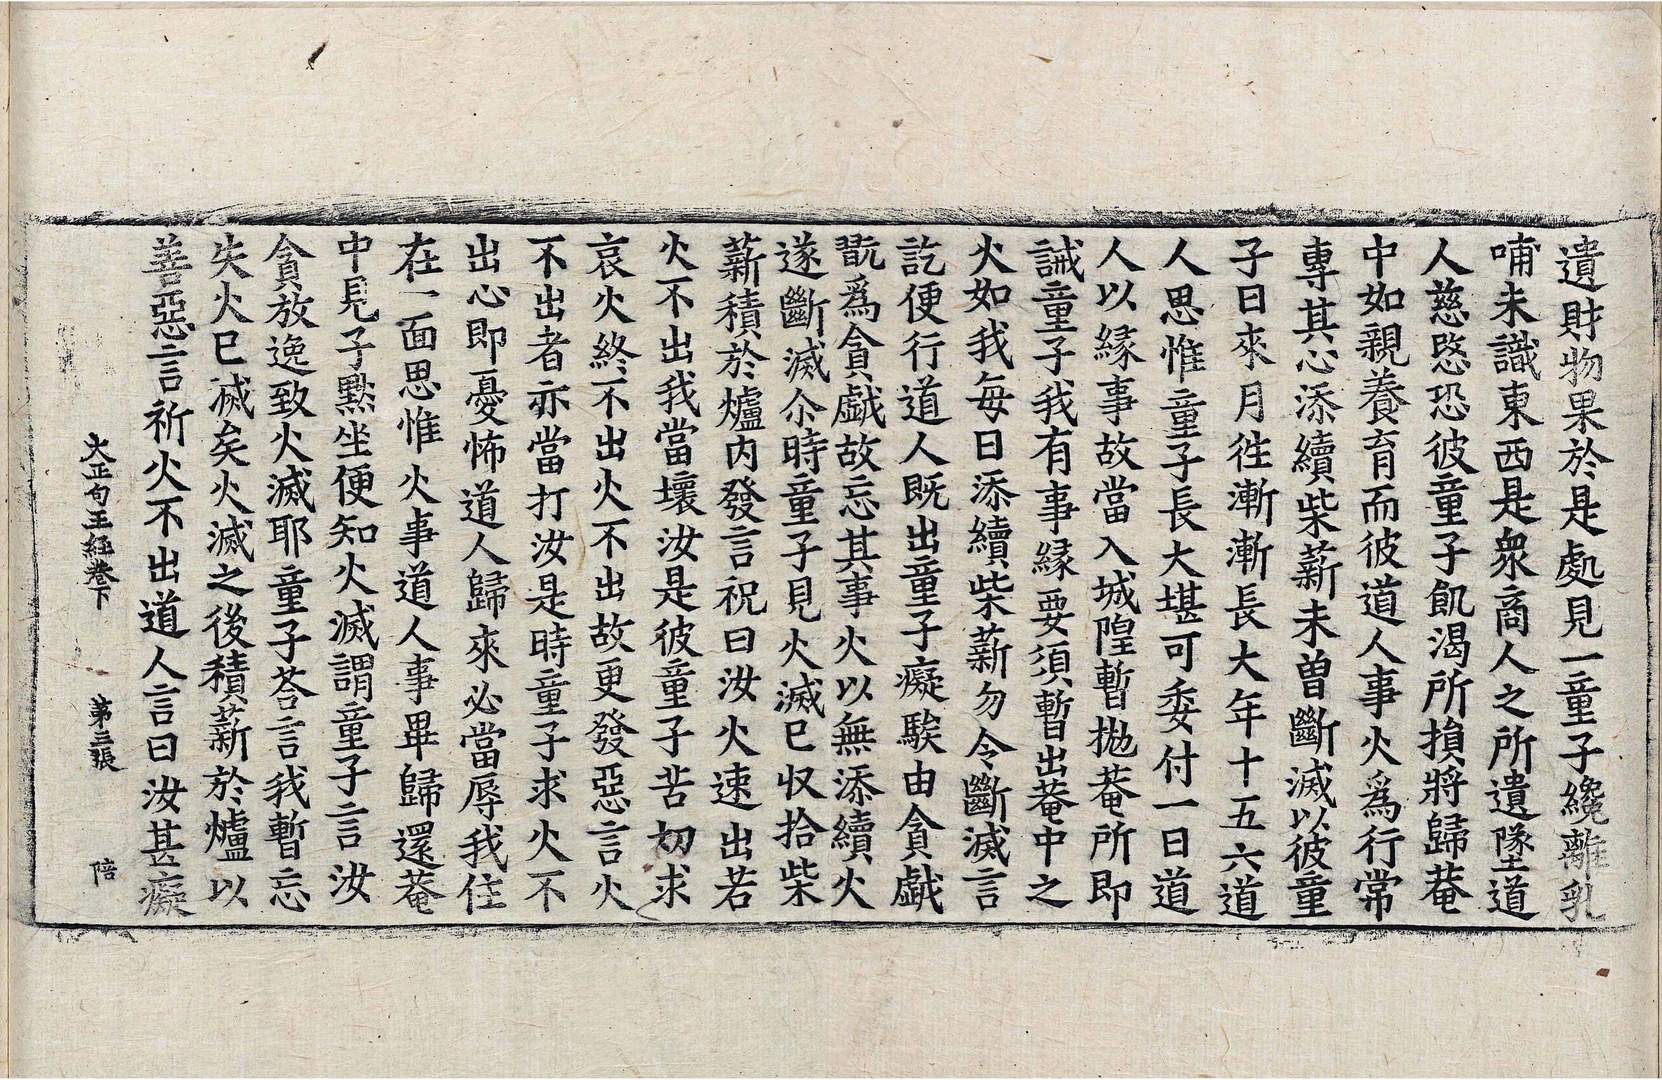 遺財物果於是處見一童子纔離乳
哺未識東西是衆商人之所遺墜道
人慈愍恐彼童子飢渴所損將歸菴
中如親養育而彼道人事火爲行常
專其心添續柴薪未曽斷滅以彼童
子日來月徃漸漸長大年十五六道
人思惟童子長大堪可委付一日道
人以緣事故當入城隍暫抛菴所即
誡童子我有事緣要須暫出菴中之
火如我每日添續柴薪勿令斷滅言
訖便行道人既出童子癡騃由貪戱
翫爲貪戱故忘其事火以無添續火
遂斷滅尒時童子見火滅已収拾柴
薪積於爐内發言祝曰汝火速出若
火不出我當壞汝是彼童子苦切求
哀火終不出火不出故更發惡言火
不出者亦當打汝是時童子求火不
出心即憂怖道人歸來必當辱我住
在一面思惟火事道人事畢歸還菴
中見子黙坐便知火滅謂童子言汝
貪放逸致火滅耶童子荅言我暫忘
失火已滅矣火滅之後積薪於爐以
善惡言祈火不出道人言曰汝甚癡
大正句王經卷下　第三張　陪